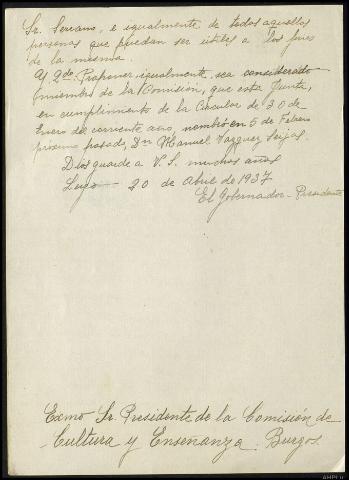 Sr. Serrano, e igualmente de todas aquellas
personas que puedan ser utiles a los fines
de la misma.
Al 2do. Proponer igualmente sea considerado
miembro de la Comisión, que esta Junta,
en cumplimiento de la Circular de 30 de
Enero del corriente año, nombró en 5 de Febrero
próximo pasado, Dn Manuel Vazquez Seijas.
Dios guarde a V. S. muchos años
Lugo 20 de Abril de 1937
El Gobernador-Presidente
Exmo Sr. Presidente de la Comisión de
Cultura y Enseñanza. Burgos
AHPLu